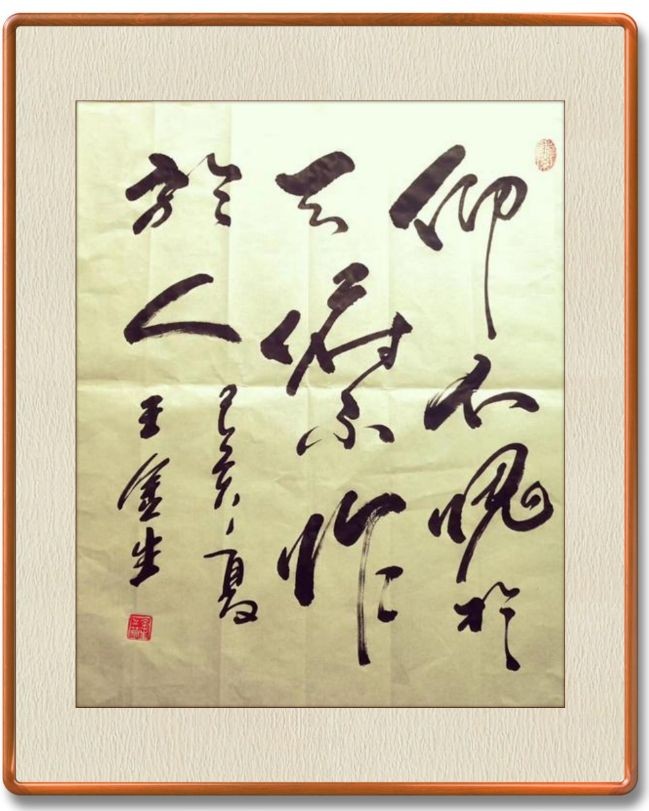 仰不愧於
天俯不怍
於人
己亥夏
王金生